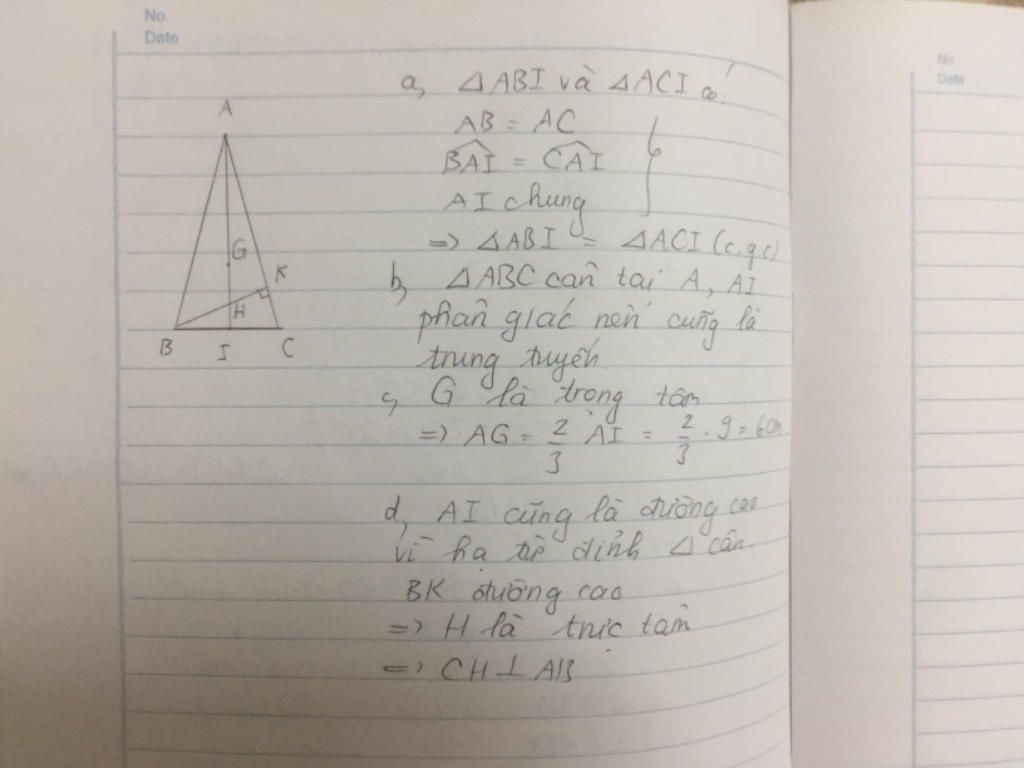 No.
Date
No
Date
A
G
K
H
B I C
a, △ABI và △ACI có:
AB = AC
\widehat{BAI} = \widehat{CAI}
AI chung
=> △ABI = △ACI (c.g.c)
b, △ABC cân tại A, AI
phân giác nên cũng là
trung tuyến.
c, G là trọng tâm
=> AG = 2/3 AI = 2/3 . 9 = 6cm
d, AI cũng là đường cao
vì hạ từ đỉnh △ cân.
BK đường cao
=> H là trực tâm
=> CH ⊥ AB